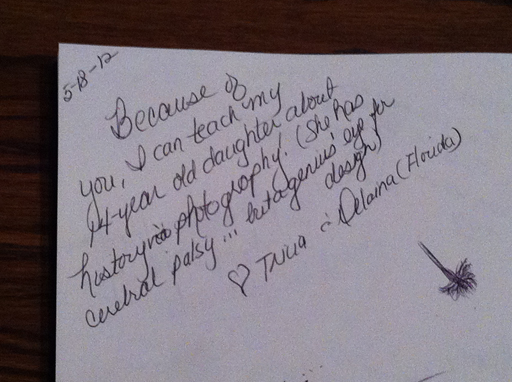 5-18-12
Because of
you, I can teach my
14-year old daughter about
history via photography. (She has
cerebral palsy... but a genius' eye for
design)
♡ Tricia & Delaina (Florida)